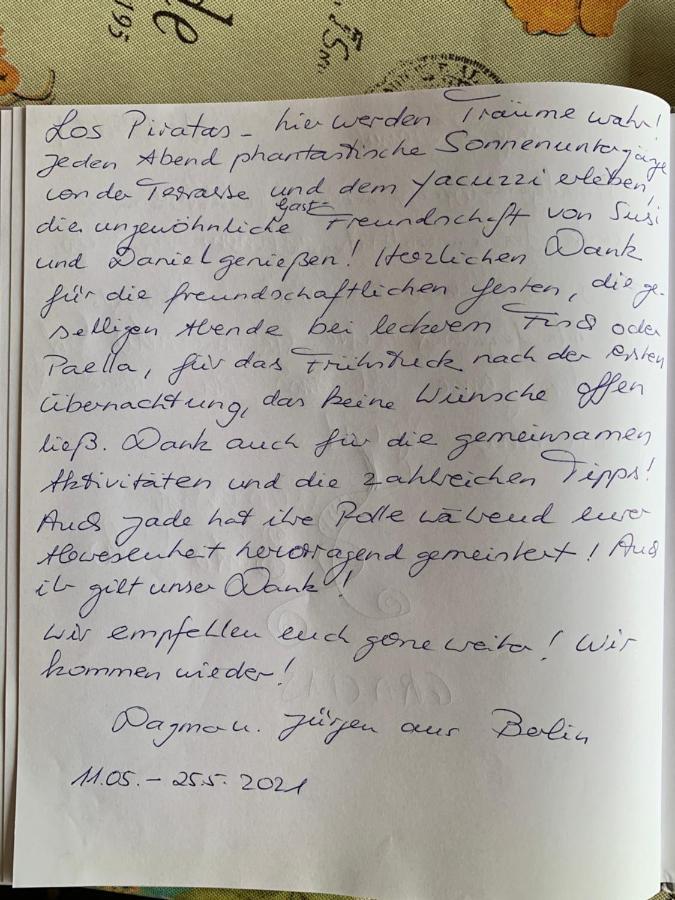 de
195
Los Piratas – hier werden Träume wahr!
Jeden Abend phantastische Sonnenuntergänge
von der Terrasse und dem Yacuzzi erleben,
die ungewöhnliche Gast-Freundschaft von Susi
und Daniel genießen! Herzlichen Dank
für die freundschaftlichen Gesten, die ge-
selligen Abende bei leckerem Fisch oder
Paella, für das Frühstück nach der ersten
Übernachtung, das keine Wünsche offen
ließ. Dank auch für die gemeinsamen
Aktivitäten und die zahlreichen Tipps!
Auch Jade hat ihre Rolle während eurer
Abwesenheit hervorragend gemeistert! Auch
ihr gilt unser Dank!
Wir empfehlen euch gerne weiter! Wir
kommen wieder!
Dagmar u. Jürgen aus Berlin
11.05. – 25.5. 2021